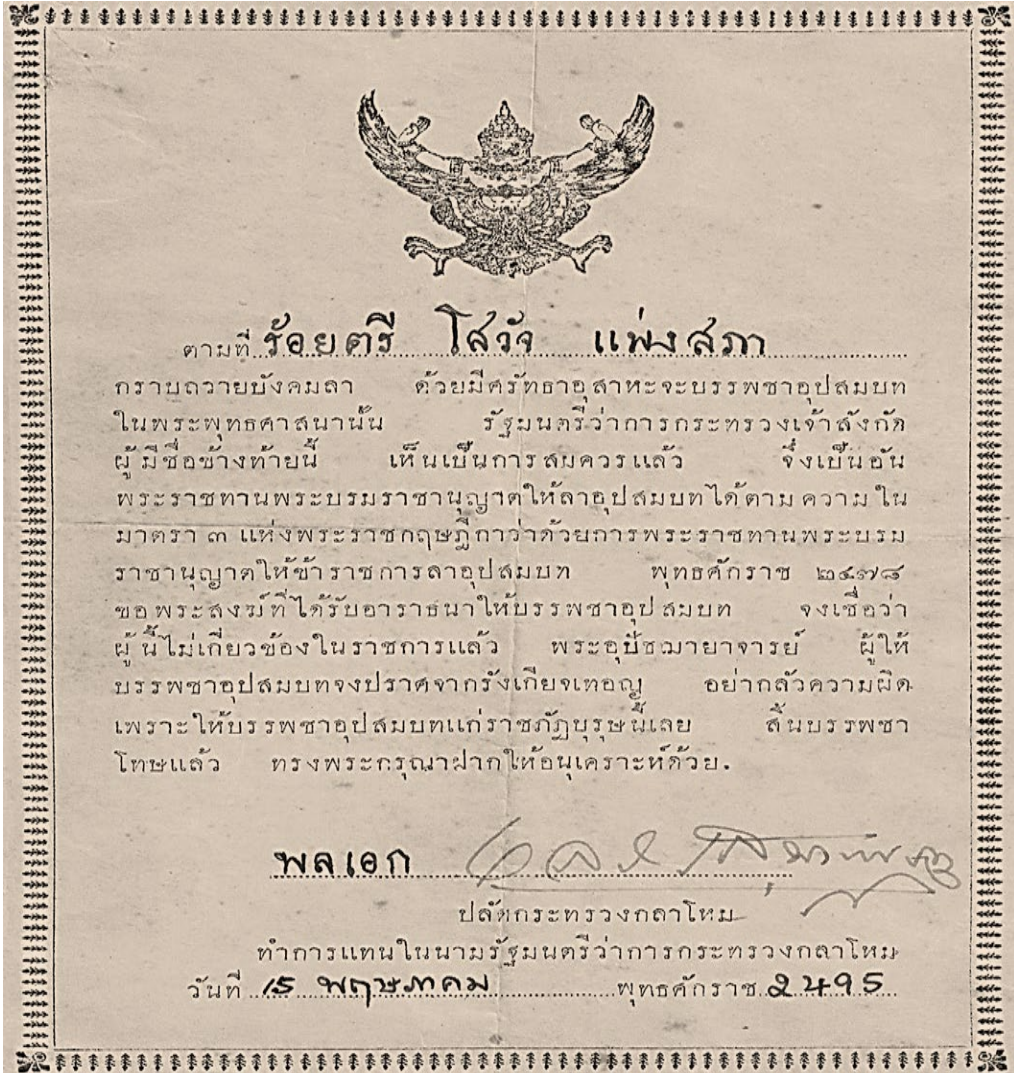 ตามที่ ร้อยตรี โสวัจ แพ่งสภา
กราบถวายบังคมลา ด้วยมีศรัทธาอุสาหะจะบรรพชาอุปสมบท
ในพระพุทธศาสนานั้น รัฐมนตรีว่าการกระทรวงเจ้าสังกัด
ผู้มีชื่อข้างท้ายนี้ เห็นเป็นการสมควรแล้ว จึงเป็นอัน
พระราชทานพระบรมราชานุญาตให้ลาอุปสมบทได้ตามความใน
มาตรา ๓ แห่งพระราชกฤษฎีกาว่าด้วยการพระราชทานพระบรม
ราชานุญาตให้ข้าราชการลาอุปสมบท พุทธศักราช ๒๔๗๘
ขอพระสงฆ์ที่ได้รับอาราธนาให้บรรพชาอุปสมบท จงเชื่อว่า
ผู้นี้ไม่เกี่ยวข้องในราชการแล้ว พระอุปัชฌายาจารย์ ผู้ให้
บรรพชาอุปสมบทจงปราศจากรังเกียจเทอญ อย่ากลัวความผิด
เพราะให้บรรพชาอุปสมบทแก่ราชภัฏบุรุษนี้เลย สิ้นบรรพชา
โทษแล้ว ทรงพระกรุณาฝากให้อนุเคราะห์ด้วย.
พลเอก
ปลัดกระทรวงกลาโหม
ทำการแทนในนามรัฐมนตรีว่าการกระทรวงกลาโหม
วันที่ 15 พฤษภาคม พุทธศักราช 2495